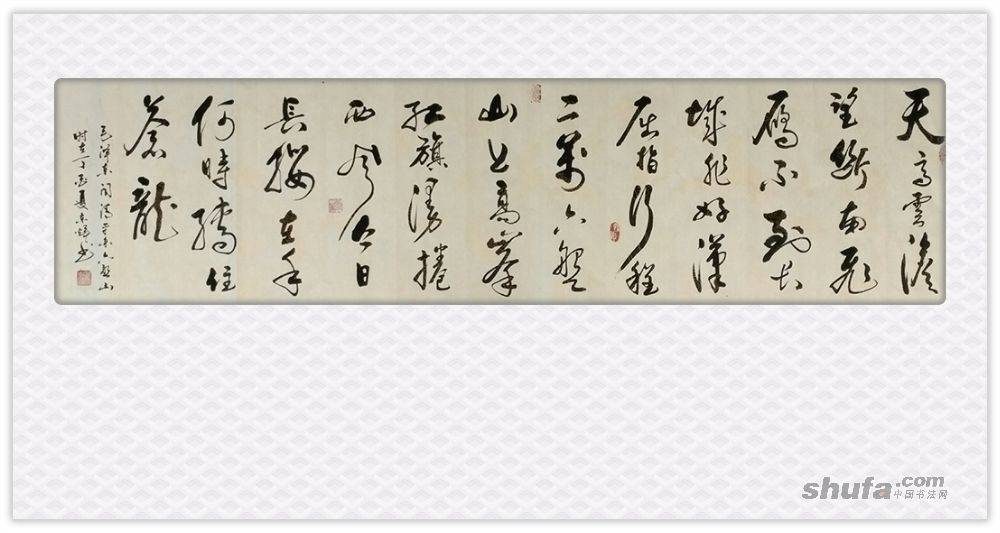 天高雲淡
望斷南飛
雁不到长
城非好漢
屈指行程
二萬六盤
山上高峯
红旗漫捲
西风今日
長纓在手
何時縛住
蒼龍
毛澤東 六盤山
时在丁酉夏 书
shufa.com
中国书法网